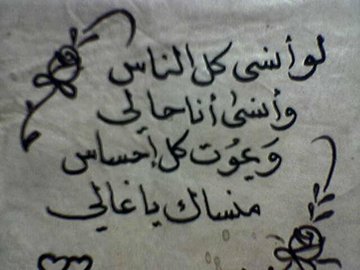 لو أنسى كل الناس
وأنسى أنا حالي
وَيمُوت كل إحساس
منساك يا غالي